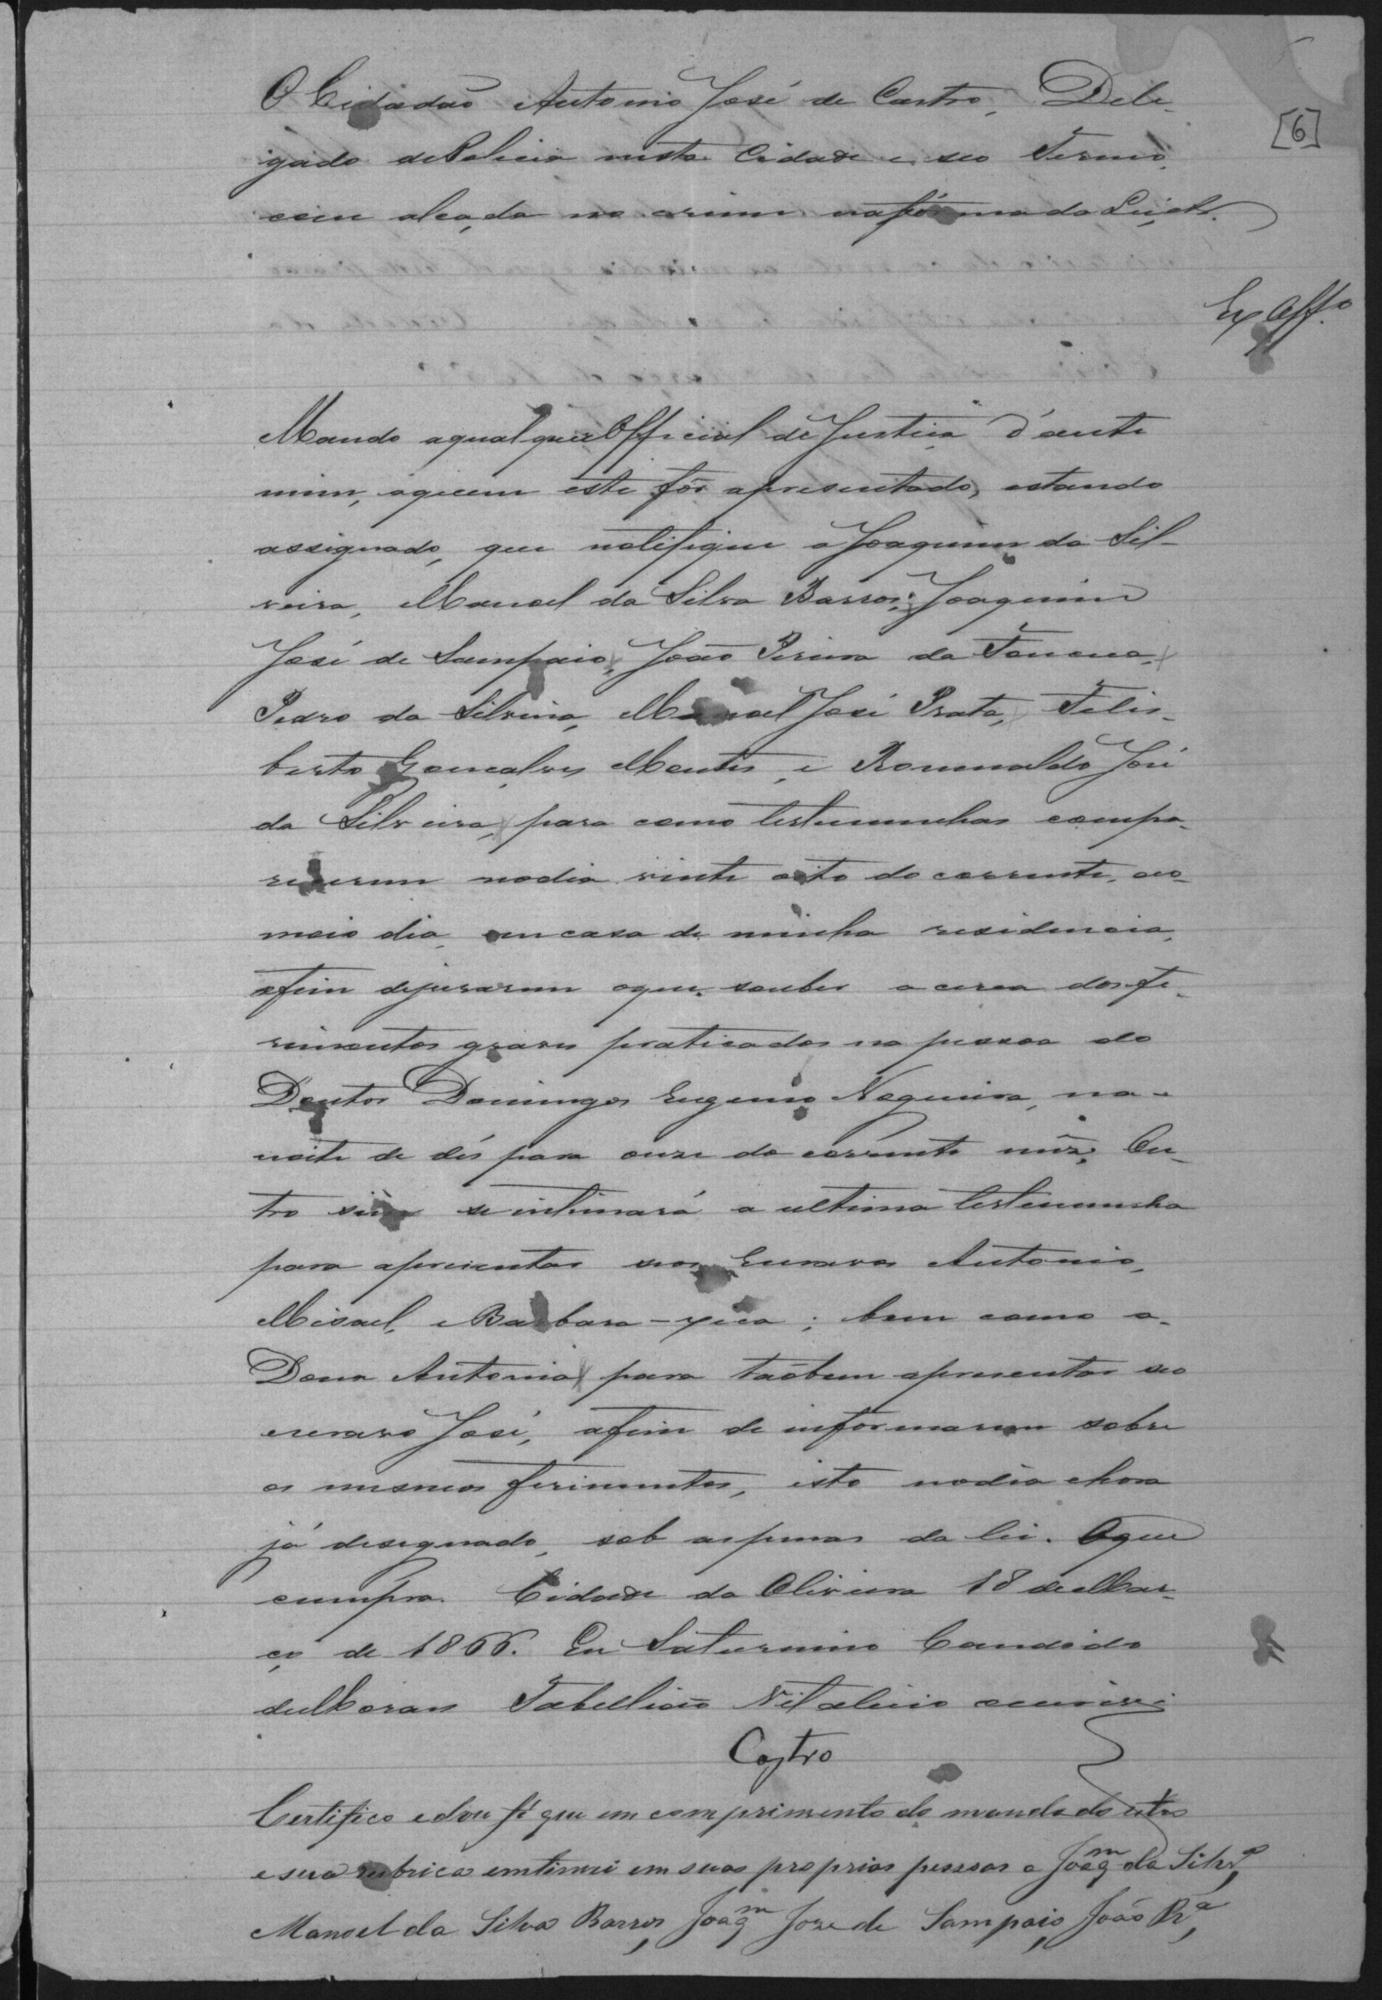 O Cidadão Antonio José de Castro, Dele-
gado de Policia nesta Cidade e seo Termo,
com alçada no crime na fórma da Lei etc.
[6]
Ex Off.º
Mando a qualquer Official de Justiça d'ante
mim, a quem este fôr apresentado, estando
assignado, que notifique a Joaquim da Sil-
veira, Manoel da Silva Barros, Joaquim
José de Sampaio, João Pereira da Fonceca,
Pedro da Silveira, Manoel José Prata, Felis-
berto Gonçalves Mentes, e Romualdo José
da Silveira, para como testemunhas compa-
recerem no dia vinte oito do corrente, ao
meio dia, em casa de minha residencia,
afim de jurarem o que souber a cerca dos fe-
rimentos graves praticados na pessoa do
Doutor Domingos Eugenio Nogueira, na
noite de dés para onze do corrente mêz. Ou-
tro sim se intimará a ultima testemunha
para apresentar seos escravos Antonio,
Misael, e Barbara - ; bem como a
Dona Antonia para taõbem apresentar seo
escravo José, afim de informarem sobre
os mesmos ferimentos, isto no dia e hora
já designado, sob as penas da lei. O que
cumpra. Cidade da Oliveira 18 de Mar-
ço de 1866. Eu Saturnino Candido
de Moraes Tabellião Vitalicio escrivi
Castro
Certifico e dou fé que em comprimento do mandado retro
e sua rubrica emtimei em suas proprias pessoas a Joaqm da Silvrª,
Manoel da Silva Barros, Joaqm Joze de Sampaio, João Prª,